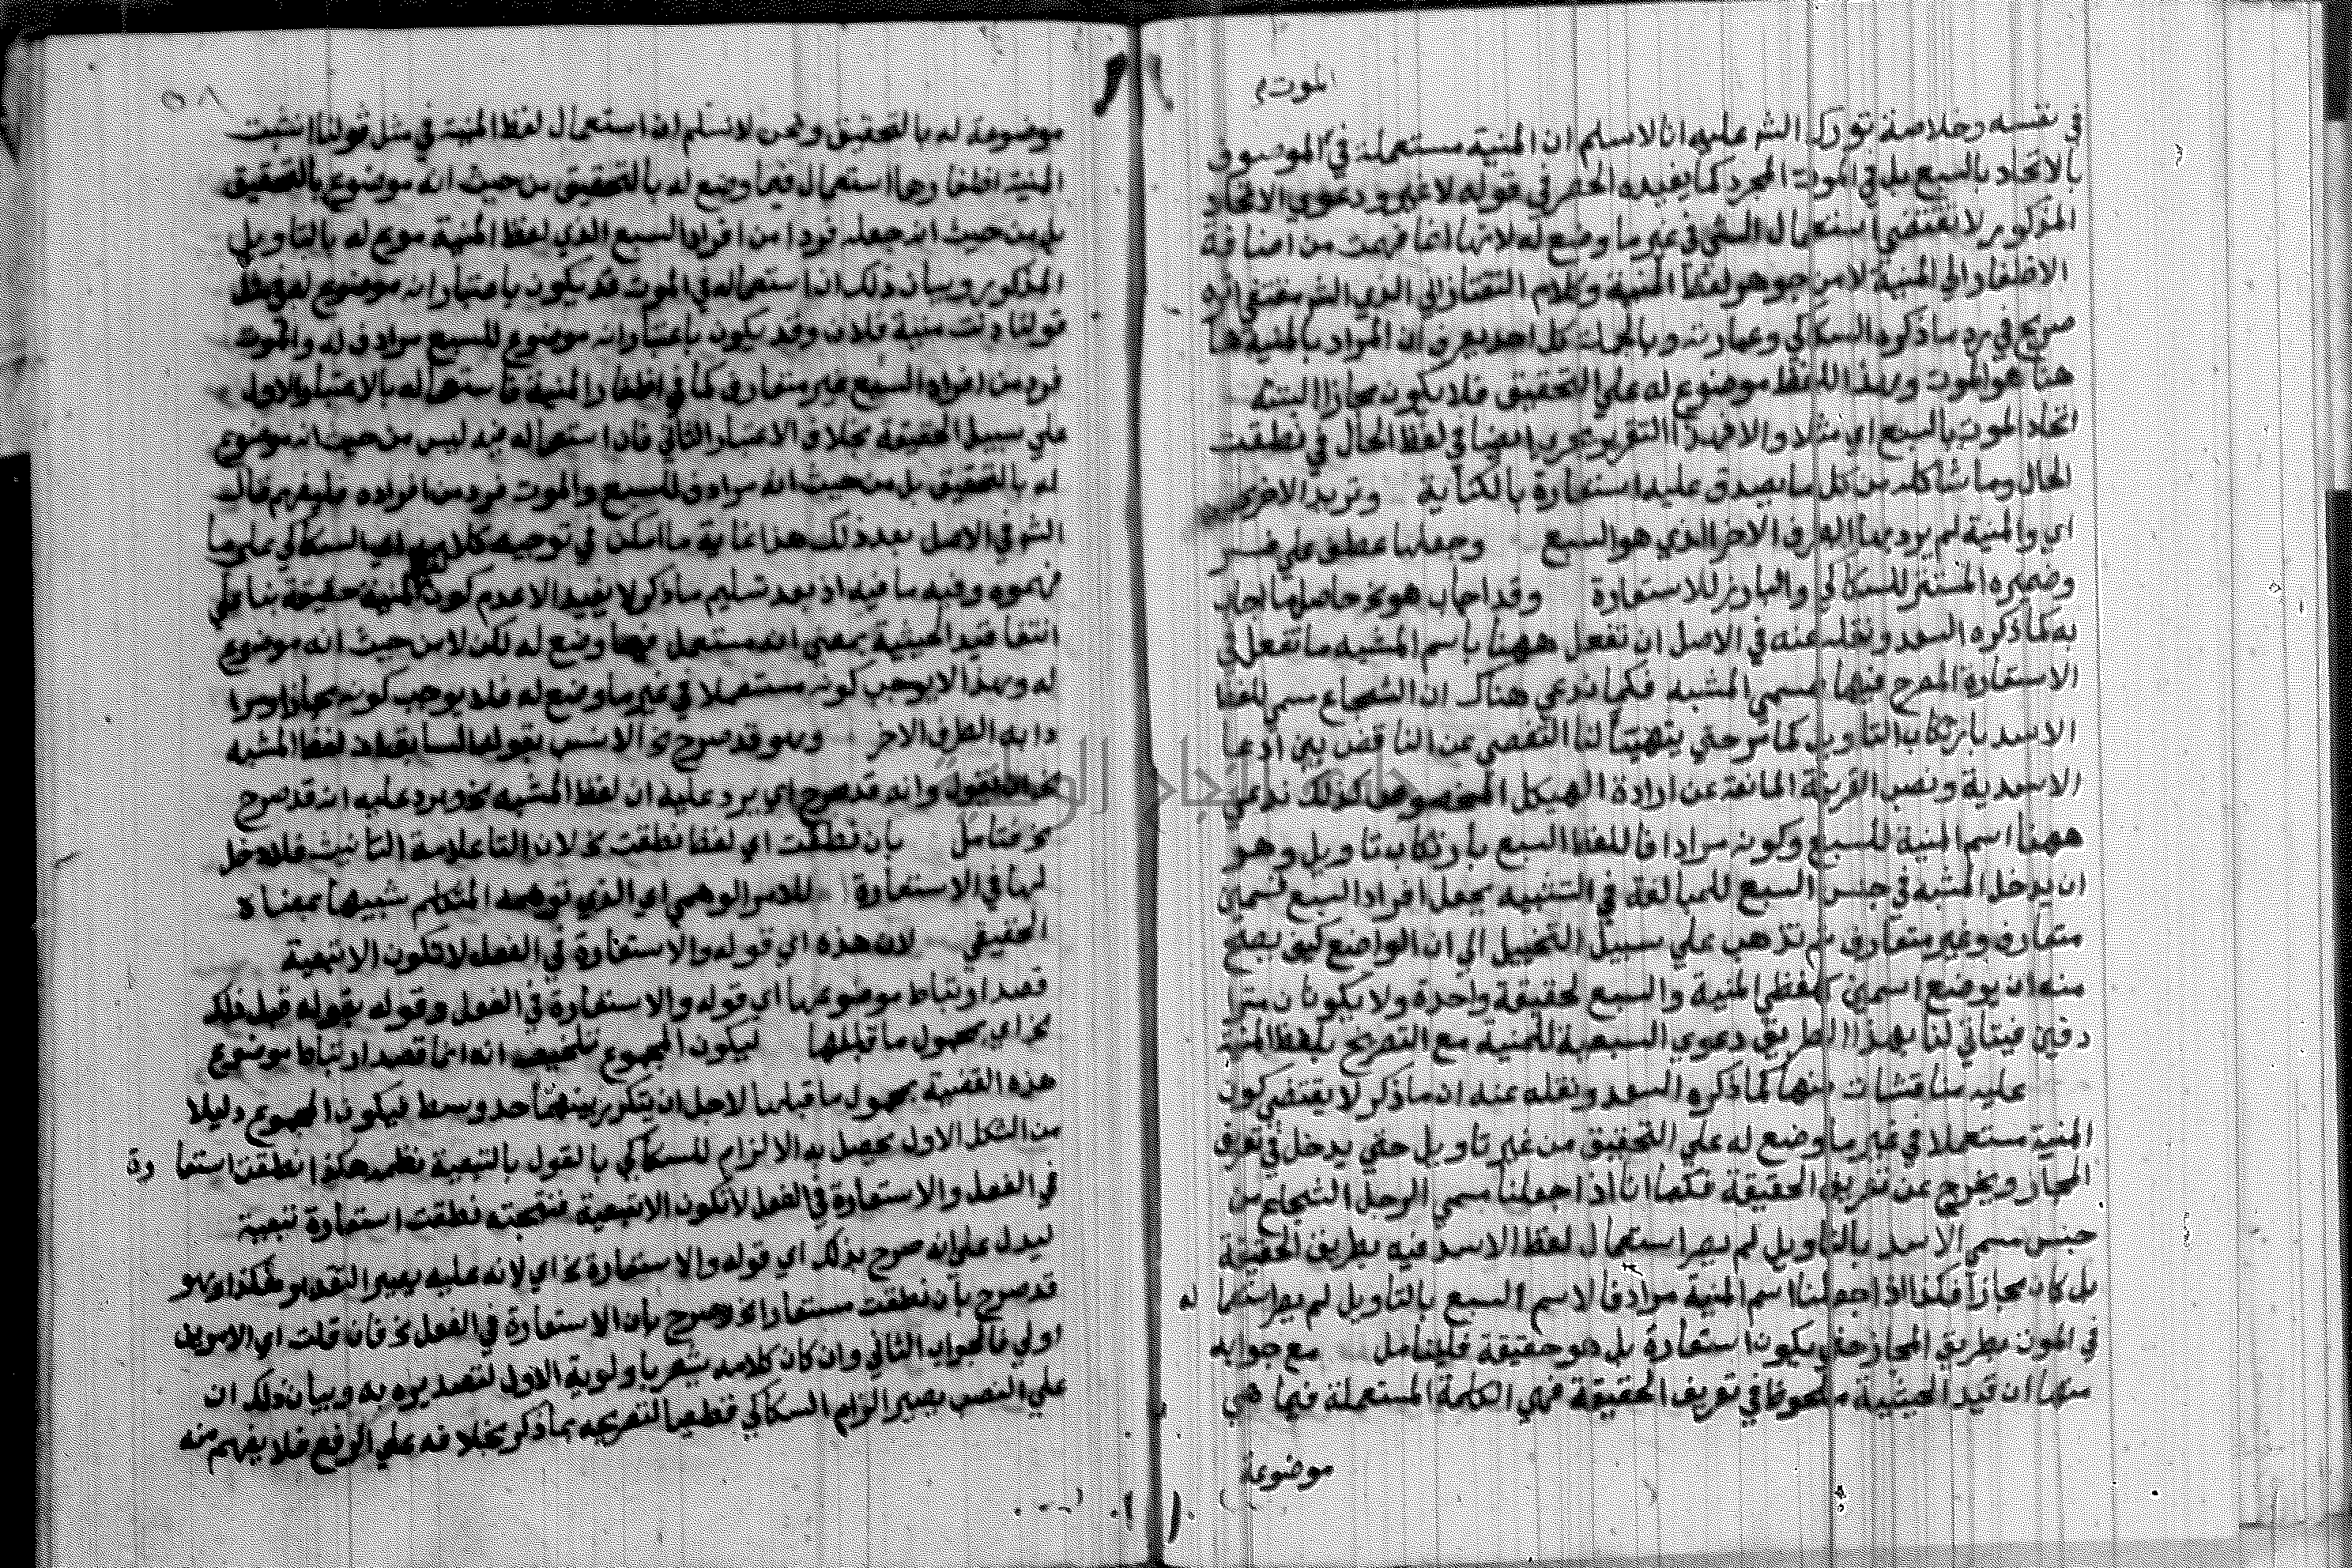 الموت م
في نفسه وخلاصة تورك الشر عليه انا لا نسلم ان المنية مستعملة في الموصوف
بالاتحاد بالسبع بل في الموت المجرد كما يفيده الحصر في قوله لا غير ودعوي الاتحاد
المذكور لا تقتضي استعمال الشي في غير ما وضع له لانها انما فهمت من اضافة
الاظفار الي المنية لا من جوهر لفظ المنية وكلام التفتازاني الذي الشر مقتفي اثره
صريح في رد ما ذكره السكاكي وعبارته وبالجملة كل احد يعرف ان المراد بالمنية ها
هنا هو الموت وهذا اللفظ موضوع له علي التحقيق فلا يكون مجازا البتة
اتحاد الموت بالسبع اي مثلا والا فهذا التقرير يجري ايضا في لفظ الحال في نطقت
الحال وما شاكله من كل ما يصدق عليه استعارة بالكناية وتريد الاخر
اي والمنية لم يرد بها الطرف الاخر الذي هو السبع وجعلها عطف علي فسر
وضميره المستتر للسكاكي والبارز للاستعارة وقد اجاب هو نخ حاصلها اجاب
به كما ذكره السعد ونقله عنه في الاصل ان نفعل ههنا باسم المشبه ما نفعل في
الاستعارة المصرح فيها بمسمي المشبه فكما ندعي هناك ان الشجاع مسمي للفظ
الاسد بارتكاب التاويل كما مر حتي يتهيا لنا التفصي عن التناقض بين ادعا
الاسدية ونصب القرينة المانعة عن ارادة الهيكل المخصوص كذلك ندعي
ههنا اسم المنية للسبع وكونه مرادفا للفظ السبع بارتكاب تاويل وهو
ان يدخل المشبه في جنس السبع للمبالغة في التشبيه بجعل افراد السبع قسمين
متعارف وغير متعارف ثم نذهب علي سبيل التخييل الي ان الواضع كيف يصح
منه ان يوضع اسمين كلفظي المنية والسبع لحقيقة واحدة ولا يكونان مترا
دفين فيتاتي لنا بهذا الطريق دعوي السبعية للمنية مع التصريح بلفظ المنية
عليه مناقشات منها كما ذكره السعد ونقله عنه ان ما ذكر لا يقتضي كون
المنية مستعملا في غير ما وضع له علي التحقيق من غير تاويل حتي يدخل في تعريف
المجاز ويخرج عن تعريف الحقيقة فكما انا اذا جعلنا مسمي الرجل الشجاع من
جنس مسمي الاسد بالتاويل لم يصر استعمال لفظ الاسد فيه بطريق الحقيقة
بل كان مجازا فكذا اذا جعلنا اسم المنية مرادفا لاسم السبع بالتاويل لم يصر استعما له
في الموت بطريق المجاز حتي يكون استعارة بل هو حقيقة فليتامل مع جوابه
منها ان قيد الحيثية ملحوظا في تعريف الحقيقة فهي الكلمة المستعملة فيما هي
موضوعة
موضوعة له بالتحقيق ونحن لا نسلم ان استعمال لفظ المنية في مثل قولنا انشبت
المنية اظفارها استعمال فيما وضع له بالتحقيق من حيث انه موضوع بالتحقيق
بل من حيث انه جعله فردا من افراد السبع الذي لفظ المنية موضع له بالتاويل
المذكور وبيان ذلك ان استعماله في الموت قد يكون باعتبار انه موضوع له في مثل
قولنا دنت منية فلان وقد يكون باعتبار انه موضوع للسبع مرادف له والموت
فرد من افراد السبع غير متعارف كما في اظفار المنية فاستعماله بالاعتبار الاول
علي سبيل الحقيقة بخلاف الاعتبار الثاني فان استعماله فيه ليس من حيث انه موضوع
له بالتحقيق بل من حيث انه مرادف للسبع والموت فرد من افراده فليفهم قال
الشر في الاصل بعد ذلك هذا غاية ما امكن في توجيه كلامه اي السكاكي علي ما
فهموه وفيه ما فيه اذ بعد تسليم ما ذكر لا يفيد الا عدم كون المنية حقيقة بنا علي
انتفا قيد الحيثية بمعني انه مستعمل فيما وضع له لكن لا من حيث انه موضوع
له وهذا لا يوجب كونه مستعملا في غير ما وضع له فلا يوجب كونه مجازا ومرا
دا به الطرف الاخر وهو قد صرح نخ الانسب بقوله السابق بان لفظ المشبه
نخ ان يقول وانه قد صرح اي يرد عليه ان لفظ المشبه نخ ويرد عليه انه قد صرح
نخ فتامل بان نطقت اي لفظ نطقت نخ لان التا علامة التانيث فلا دخل
لها في الاستعارة للامر الوهمي اي الذي توهمه المتكلم شبيها بمعناه
الحقيقي لان هذه اي قوله والاستعارة في الفعل لا تكون الا تبعية
قصد ارتباط موضوعها اي قوله والاستعارة في الفعل وقوله بقوله قبل ذلك
نخ اي بمحمول ما قبلها ليكون المجموع تلخيصه انه انما قصد ارتباط موضوع
هذه القضية بمحمول ما قبلها لاجل ان يتكرر بينهما حد وسط فيكون المجموع دليلا
من الشكل الاول يحصل به الالزام للسكاكي بالقول بالتبعية نظمه هكذا نطقت استعا رة
في الفعل والاستعارة في الفعل لا تكون الا تبعية فنتيجته نطقت استعارة تبعية
ليدل علي انه صرح بذلك اي قوله والاستعارة نخ اي لانه عليه يصير التقدير هكذا وهو
قد صرح بان نطقت مستعار نخ وصرح بان الاستعارة في الفعل نخ فان قلت اي الامرين
اولي فالجواب الثاني وان كان كلامه يشعر باولوية الاول لتصديره به وبيان ذلك ان
علي النصب يصير الزام السكاكي قطعيا لتصريحه بما ذكر بخلافه علي الرفع فلا يفهم منه